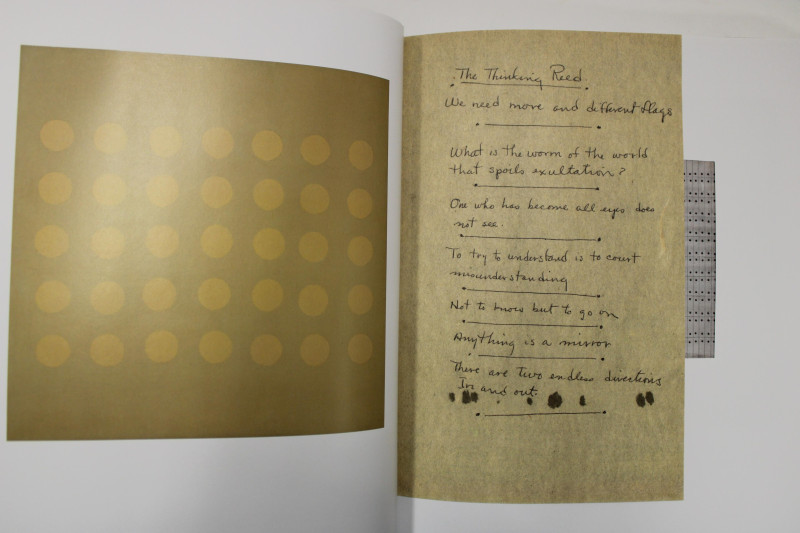 The Thinking Reed
We need more and different flags
What is the worm of the world
that spoils exultation?
One who has become all eyes does
not see.
To try to understand is to court
misunderstanding
Not to know but to go on
Anything is a mirror
There are two endless directions
In and out.